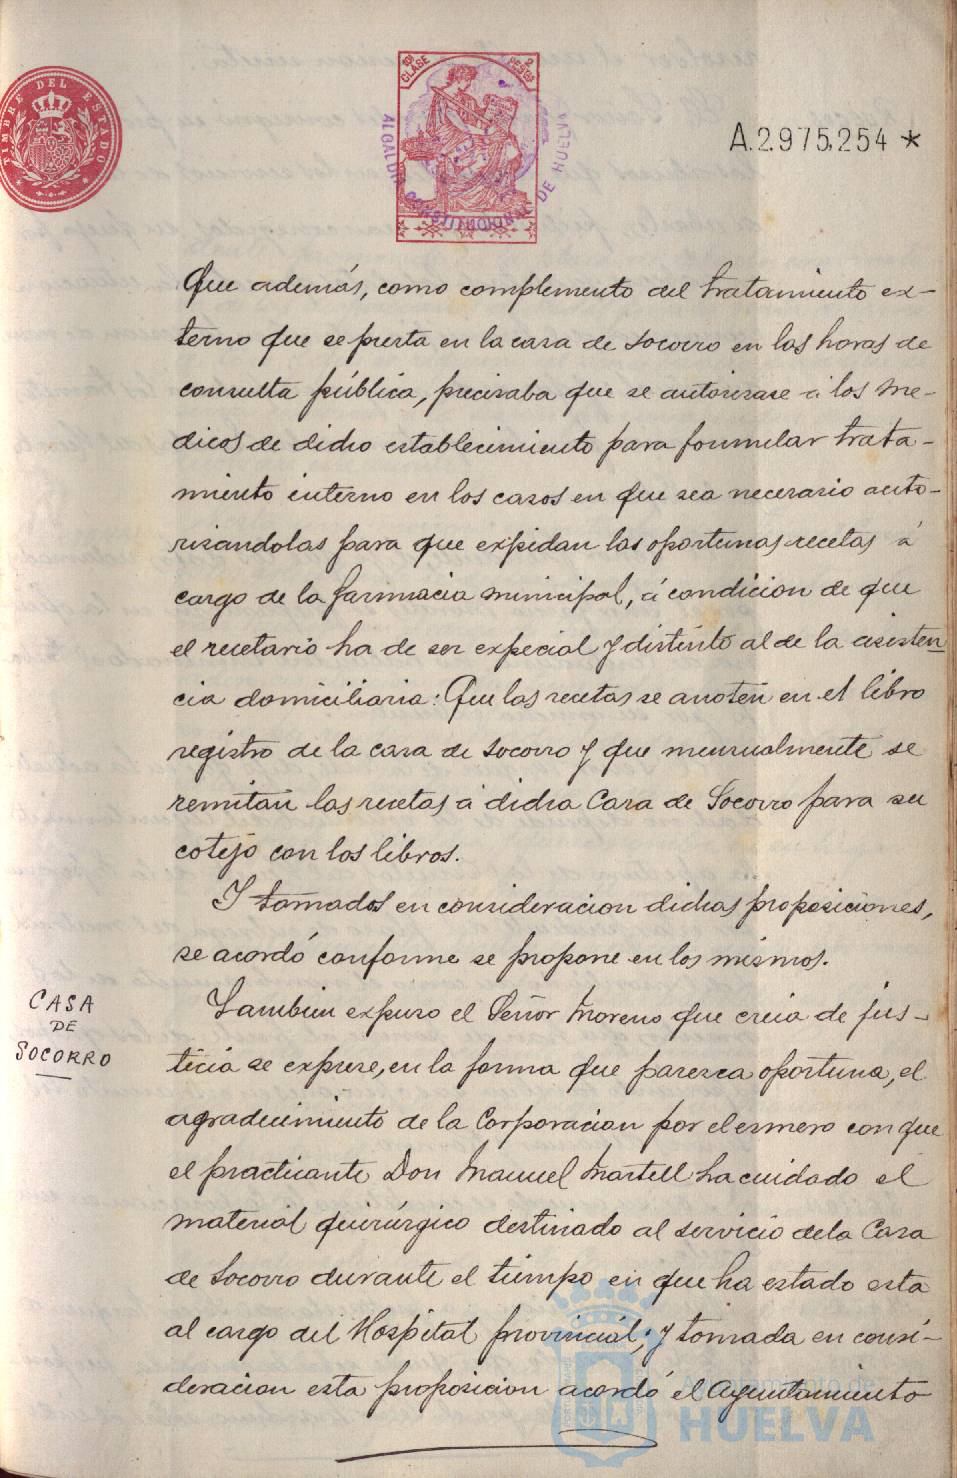 TIMBRE DEL ESTADO
10ª CLASE
2 PESETAS
ALCALDIA CONSTITUCIONAL DE HUELVA
A.2.975,254 *
Que además, como complemento del tratamiento ex-
terno que se presta en la casa de Socorro en las horas de
consulta pública, precisaba que se autorisase á los Me-
dicos de dicho establecimiento para formular trata-
miento interno en los casos en que sea necesario auto-
risandolas para que expidan las oportunas recetas á
cargo de la farmacia municipal, á condicion de que
el recetario ha de ser expecial y distinto al de la asisten
cia domiciliaria: Que las recetas se anoten en el libro
registro de la casa de Socorro y que mensualmente se
remitan las recetas á dicha Casa de Socorro para su
cotejo con los libros.
Y tomados en consideracion dichas proposiciones,
se acordó conforme se propone en los mismos.
CASA
DE
SOCORRO
Tambien expuso el Señor Moreno que creia de jus-
ticia se exprese, en la forma que paresca oportuna, el
agradecimiento de la Corporacion por el esmero con que
el practicante Don Manuel Martell ha cuidado el
material quirúrgico destinado al servicio dela Casa
de Socorro durante el tiempo en que ha estado esta
al cargo del Hospital provincial; y tomada en consi-
deracion esta proposicion acordó el Ayuntamiento
Ayuntamiento de
HUELVA